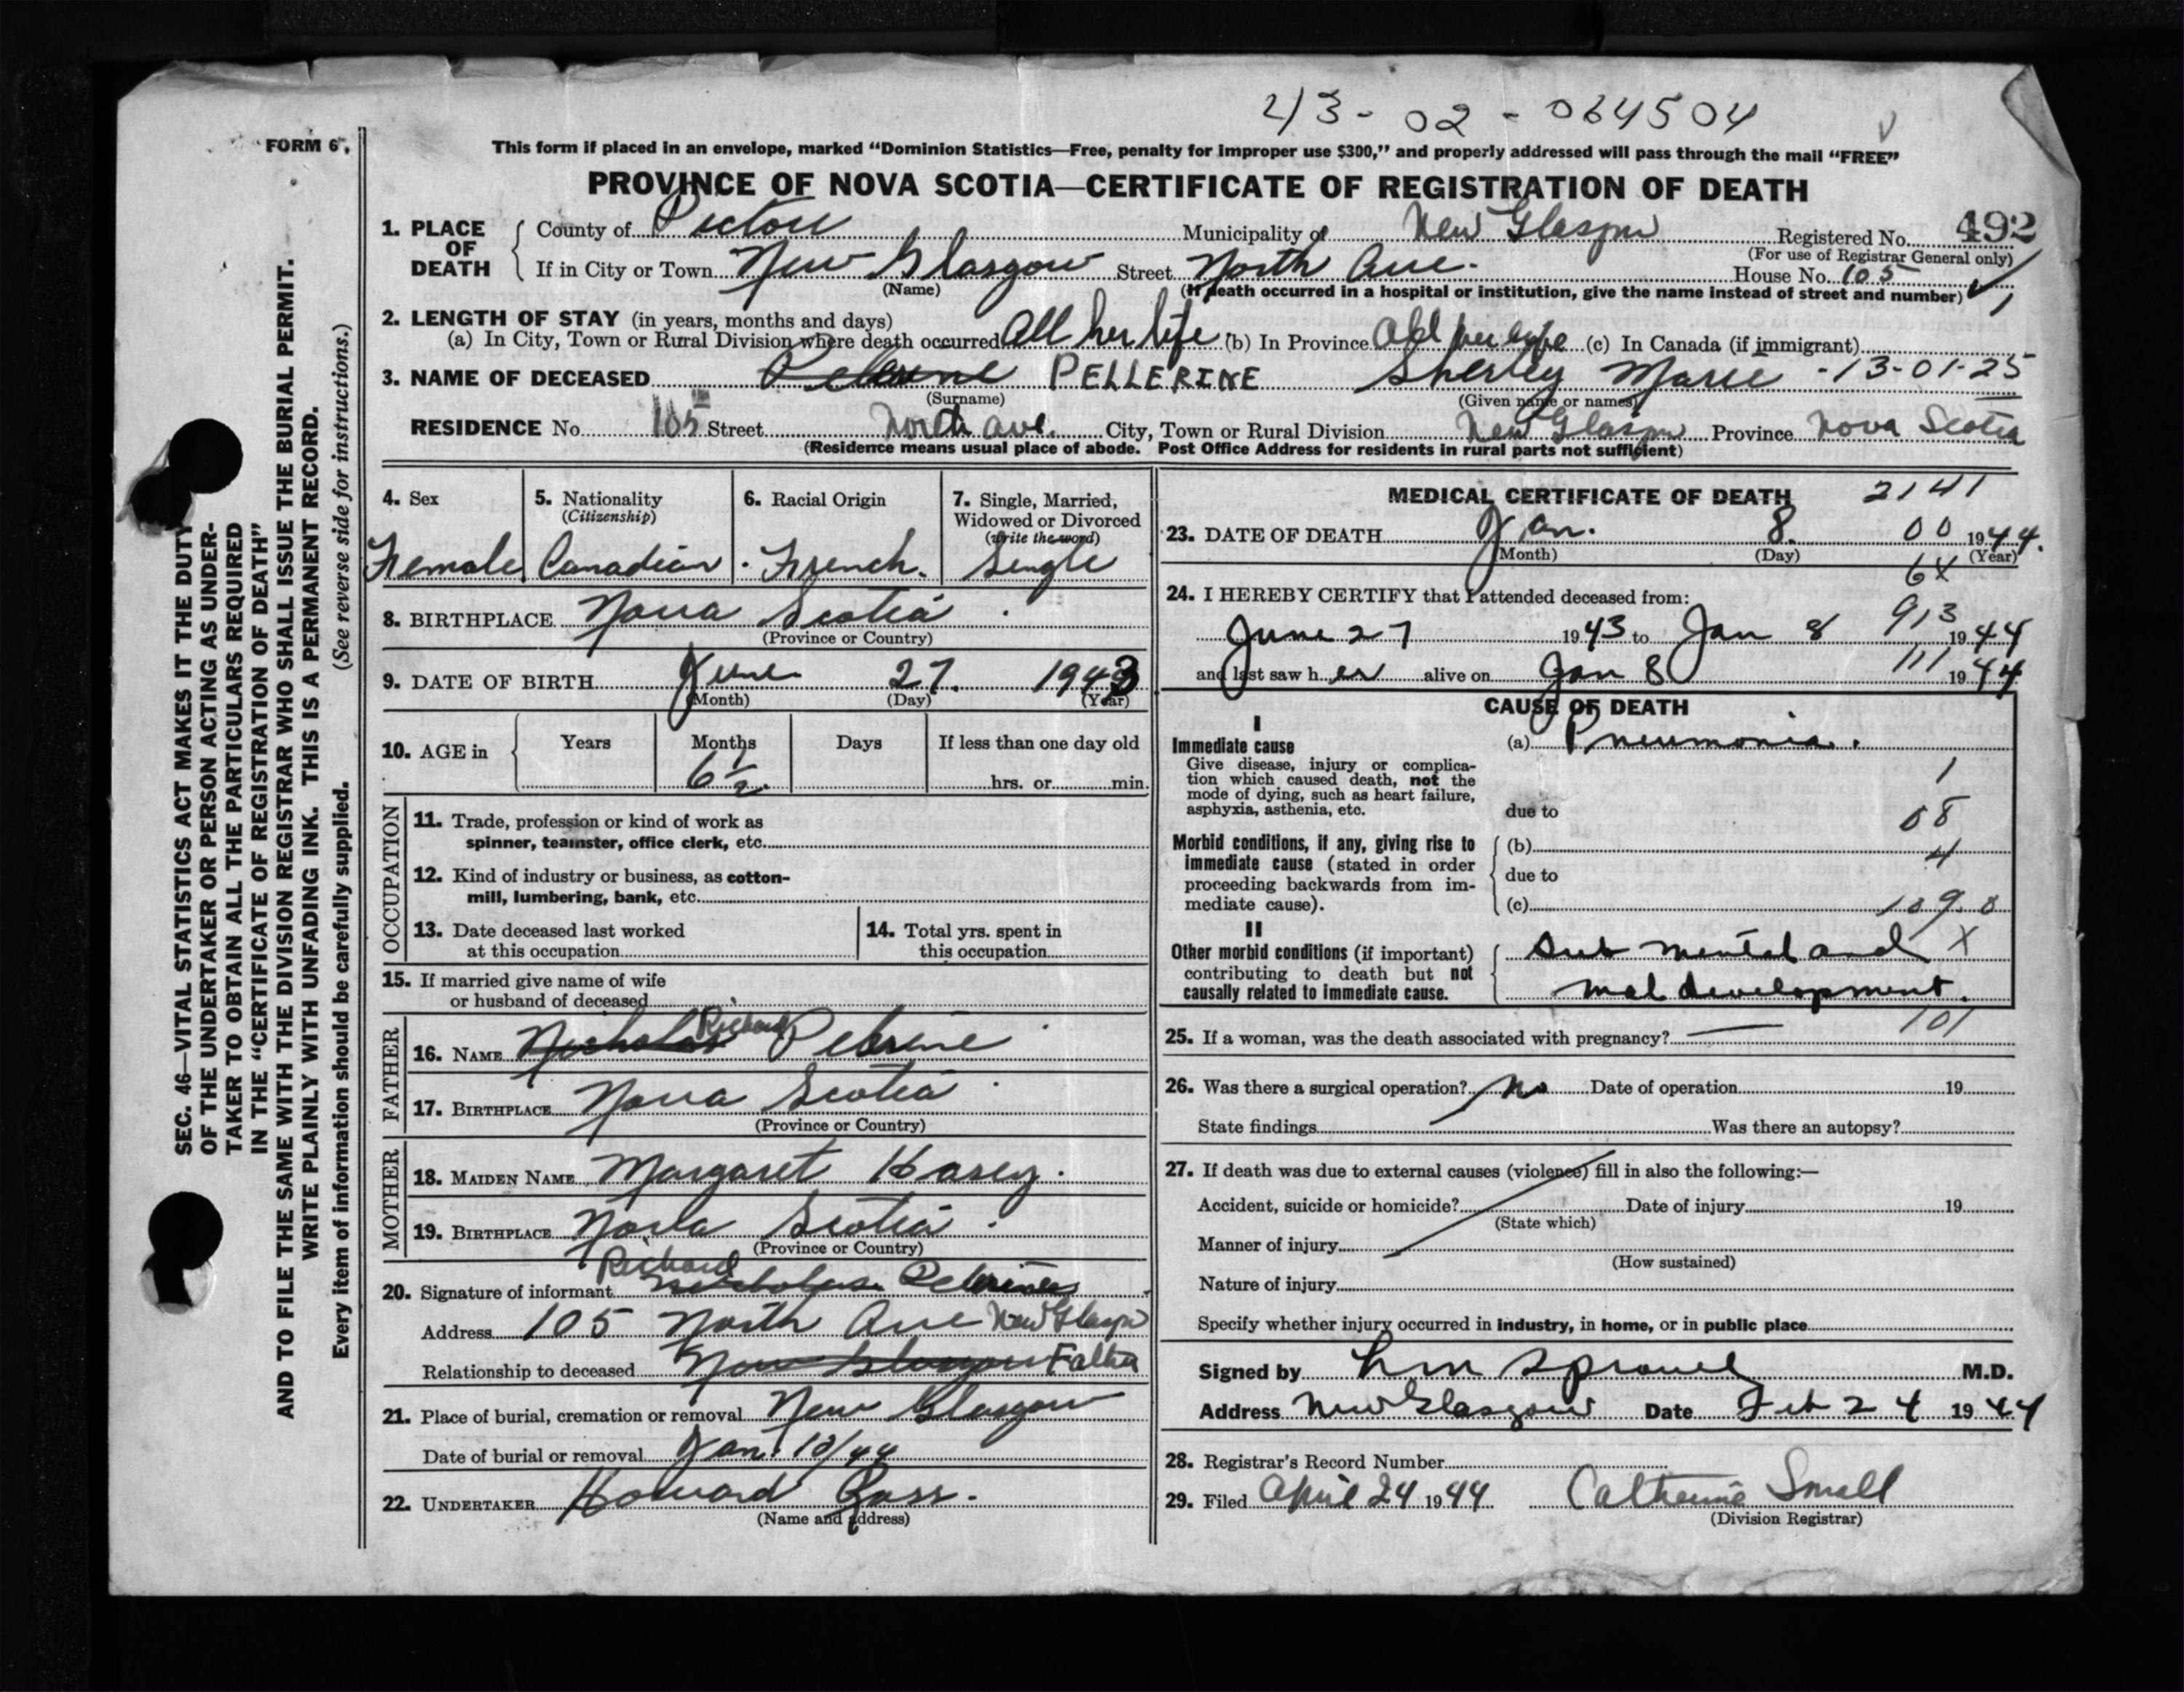 213-02-064504
FORM 6
This form if placed in an envelope, marked “Dominion Statistics—Free, penalty for improper use $300,” and properly addressed will pass through the mail “FREE”
PROVINCE OF NOVA SCOTIA—CERTIFICATE OF REGISTRATION OF DEATH
1. PLACE OF DEATH County of Pictou Municipality of New Glasgow Registered No. 492
(For use of Registrar General only)
If in City or Town New Glasgow Street North Ave. House No. 105
(Name) (If death occurred in a hospital or institution, give the name instead of street and number)
2. LENGTH OF STAY (in years, months and days)
(a) In City, Town or Rural Division where death occurred All her life (b) In Province All her life (c) In Canada (if immigrant)
3. NAME OF DECEASED PELLERINE Sherley Marie -13-01-25
(Surname) (Given name or names)
RESIDENCE No. 105 Street North Ave. City, Town or Rural Division New Glasgow Province Nova Scotia
(Residence means usual place of abode. Post Office Address for residents in rural parts not sufficient)
SEC. 46—VITAL STATISTICS ACT MAKES IT THE DUTY
OF THE UNDERTAKER OR PERSON ACTING AS UNDER-
TAKER TO OBTAIN ALL THE PARTICULARS REQUIRED
IN THE “CERTIFICATE OF REGISTRATION OF DEATH”
AND TO FILE THE SAME WITH THE DIVISION REGISTRAR WHO SHALL ISSUE THE BURIAL PERMIT.
WRITE PLAINLY WITH UNFADING INK. THIS IS A PERMANENT RECORD.
Every item of information should be carefully supplied. (See reverse side for instructions.)
4. Sex 5. Nationality 6. Racial Origin 7. Single, Married,
(Citizenship) Widowed or Divorced
(write the word)
Female Canadian French. Single
8. BIRTHPLACE Nova Scotia
(Province or Country)
9. DATE OF BIRTH June 27. 1943
(Month) (Day) (Year)
10. AGE in Years Months Days If less than one day old
6 1/2 hrs. or min.
OCCUPATION
11. Trade, profession or kind of work as
spinner, teamster, office clerk, etc.
12. Kind of industry or business, as cotton-
mill, lumbering, bank, etc.
13. Date deceased last worked 14. Total yrs. spent in
at this occupation this occupation
15. If married give name of wife
or husband of deceased
FATHER
16. NAME Nicholas Richard Pelrine
17. BIRTHPLACE Nova Scotia
(Province or Country)
MOTHER
18. MAIDEN NAME Margaret Hasey
19. BIRTHPLACE Nova Scotia
(Province or Country)
Richard
20. Signature of informant Nicholas Pelrine
Address 105 North Ave New Glasgow
Relationship to deceased New Glasgow Father
21. Place of burial, cremation or removal New Glasgow
Date of burial or removal Jan. 10/44
22. UNDERTAKER Howard Ross.
(Name and address)
MEDICAL CERTIFICATE OF DEATH 2141
23. DATE OF DEATH Jan. 8. 00 1944.
(Month) (Day) (Year)
64
24. I HEREBY CERTIFY that I attended deceased from:
June 27 1943 to Jan 8 913 1944
and last saw her alive on Jan 8 111 1944
CAUSE OF DEATH
I
Immediate cause (a) Pneumonia.
Give disease, injury or complica-
tion which caused death, not the 1
mode of dying, such as heart failure,
asphyxia, asthenia, etc. due to 08
Morbid conditions, if any, giving rise to (b)
immediate cause (stated in order 4
proceeding backwards from im- due to
mediate cause). (c) 109.0
II
Other morbid conditions (if important) Sub mental and X
contributing to death but not
causally related to immediate cause. mal development.
101
25. If a woman, was the death associated with pregnancy?
26. Was there a surgical operation? No Date of operation 19
State findings Was there an autopsy?
27. If death was due to external causes (violence) fill in also the following:—
Accident, suicide or homicide? Date of injury 19
(State which)
Manner of injury
(How sustained)
Nature of injury
Specify whether injury occurred in industry, in home, or in public place
Signed by M.D.
Address New Glasgow Date Feb 24 1944
28. Registrar's Record Number
29. Filed April 24 1944 Catherine Small
(Division Registrar)